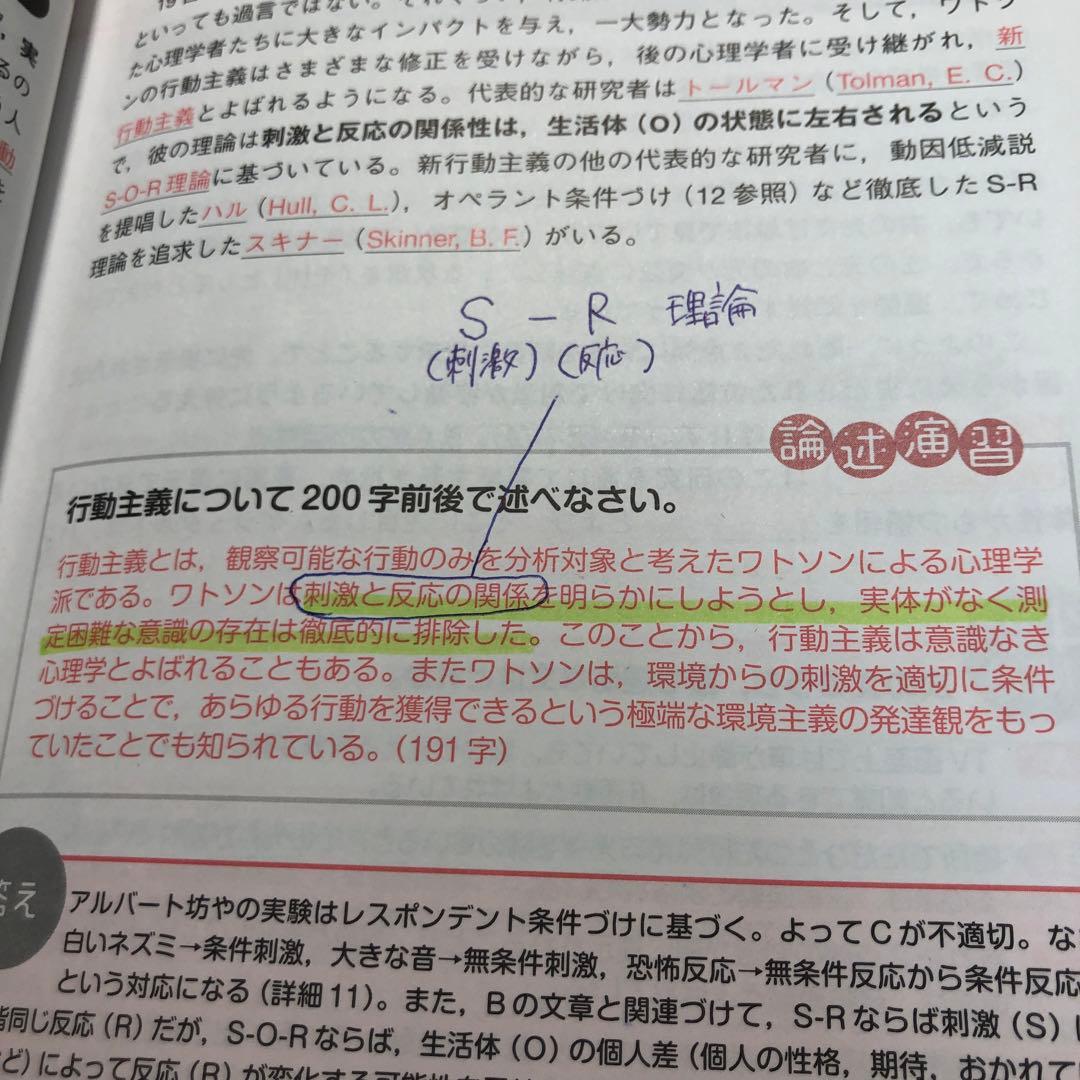 といっても過言ではない。
た心理学者たちに大きなインパクトを与え，一大勢力となった。そして，ワトソ
ンの行動主義はさまざまな修正を受けながら，後の心理学者に受け継がれ，新
行動主義とよばれるようになる。代表的な研究者はトールマン（Tolman, E. C.）
で，彼の理論は刺激と反応の関係性は，生活体（O）の状態に左右されるという
S-O-R理論に基づいている。新行動主義の他の代表的な研究者に，動因低減説
を提唱したハル（Hull, C. L.），オペラント条件づけ（12参照）など徹底したS-R
理論を追求したスキナー（Skinner, B. F.）がいる。
S － R 理論
（刺激）（反応）
論述演習
行動主義について200字前後で述べなさい。
行動主義とは，観察可能な行動のみを分析対象と考えたワトソンによる心理学
派である。ワトソンは刺激と反応の関係を明らかにしようとし，実体がなく測
定困難な意識の存在は徹底的に排除した。このことから，行動主義は意識なき
心理学とよばれることもある。またワトソンは，環境からの刺激を適切に条件
づけることで，あらゆる行動を獲得できるという極端な環境主義の発達観をもっ
ていたことでも知られている。（191字）
答え
アルバート坊やの実験はレスポンデント条件づけに基づく。よってCが不適切。な
白いネズミ→条件刺激，大きな音→無条件刺激，恐怖反応→無条件反応から条件反応
という対応になる（詳細11）。また，Bの文章と関連づけて，S-Rならば刺激（S）
同じ反応（R）だが，S-O-Rならば，生活体（O）の個人差（個人の性格，期待，おかれて
ど）によって反応（R）が変化する可能性を